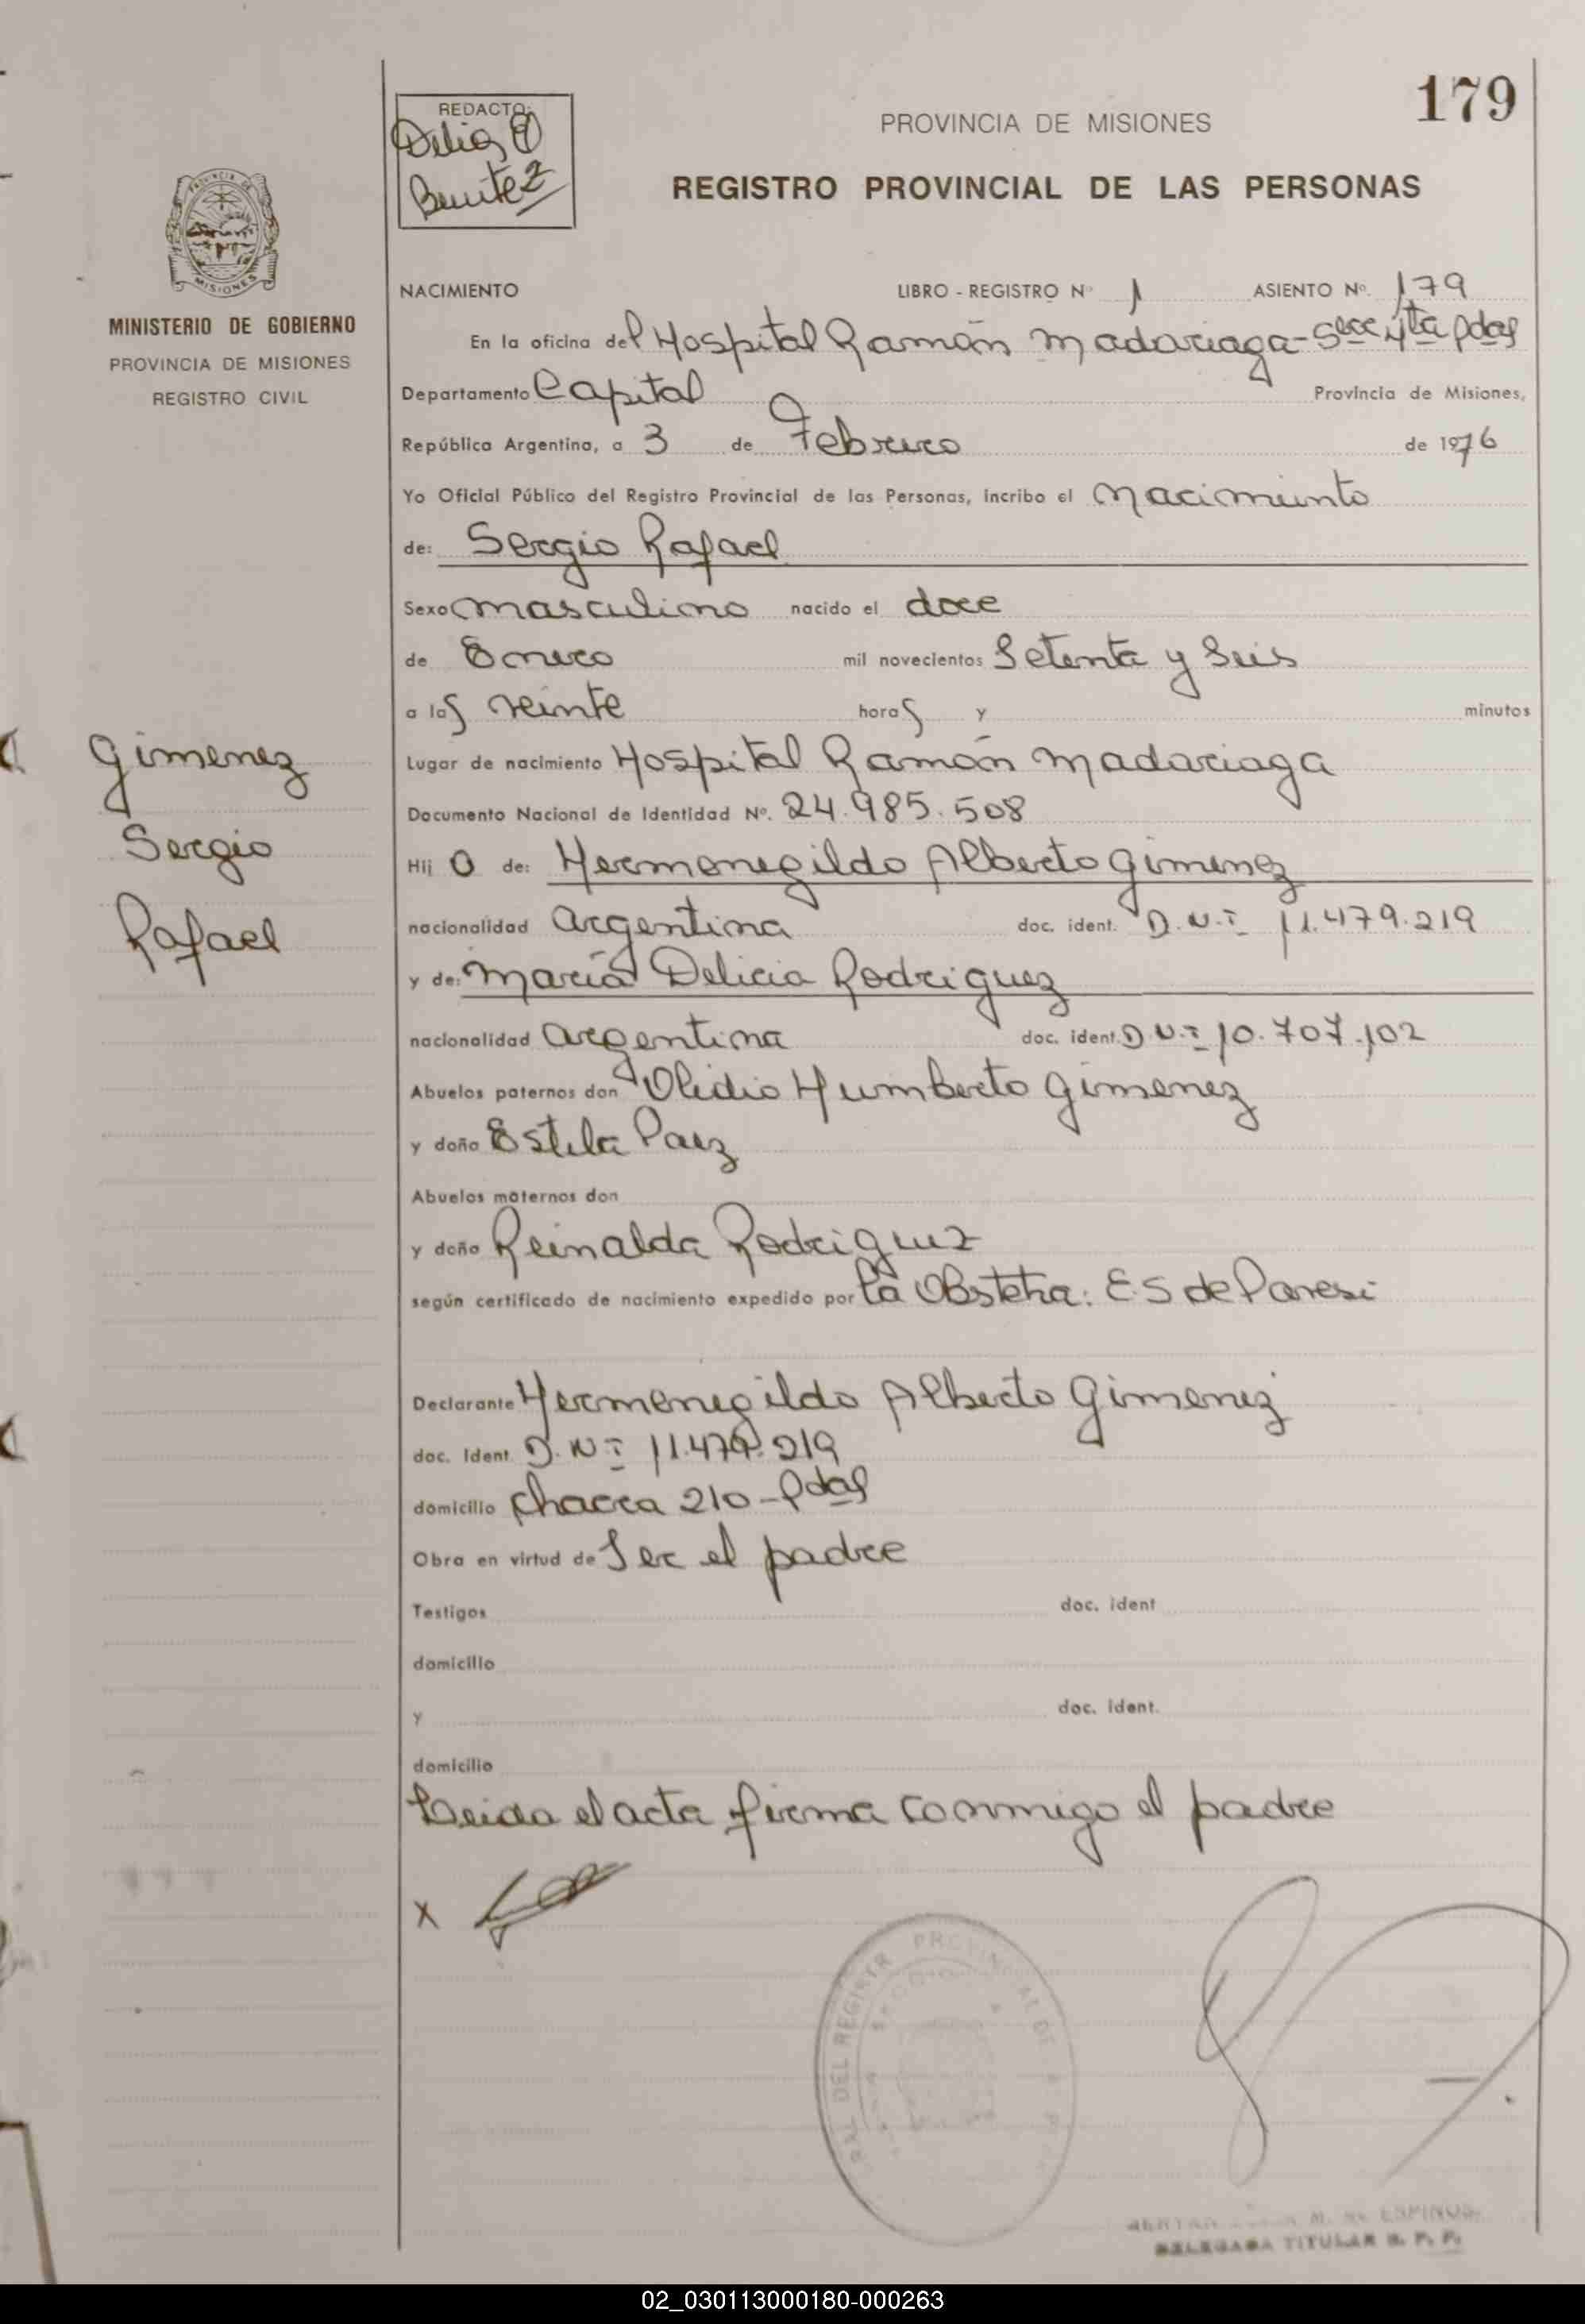 179
REDACTO:
Delia
Benitez
PROVINCIA DE MISIONES
REGISTRO PROVINCIAL DE LAS PERSONAS
PROVINCIA DE
MISIONES
MINISTERIO DE GOBIERNO
PROVINCIA DE MISIONES
REGISTRO CIVIL
NACIMIENTO LIBRO - REGISTRO Nº 1 ASIENTO Nº. 179
En la oficina del Hospital Ramón Madariaga - Pdas
Departamento Capital Provincia de Misiones,
República Argentina, a 3 de Febrero de 1976
Yo Oficial Público del Registro Provincial de las Personas, incribo el nacimiento
de: Sergio Rafael
Sexo masculino nacido el doce
de Enero mil novecientos Setenta y Seis
a las veinte horas y minutos
Gimenez
Sergio
Rafael
Lugar de nacimiento Hospital Ramón Madariaga
Documento Nacional de Identidad Nº. 24.985.508
Hij o de: Hermenegildo Alberto Gimenez
nacionalidad argentina doc. ident. D.N.I 11.479.219
y de: María Delicia Rodriguez
nacionalidad argentina doc. ident. D.N.I 10.707.102
Abuelos paternos don Olidio Humberto Gimenez
y doña Estela Paez
Abuelos maternos don
y doña Reinalda Rodriguez
según certificado de nacimiento expedido por la Obstetra: E.S de Paresi
Declarante Hermenegildo Alberto Gimenez
doc. Ident. D.N.I 11.479.219
domicilio chacra 210 - Pdas
Obra en virtud de Ser el padre
Testigos doc. ident
domicilio
y doc. ident.
domicilio
Leida el acta firma conmigo el padre
X
DEL REGISTR PROVINCIAL DE
ESPINOS
DELEGADA TITULAR R. P. P.
02_030113000180-000263